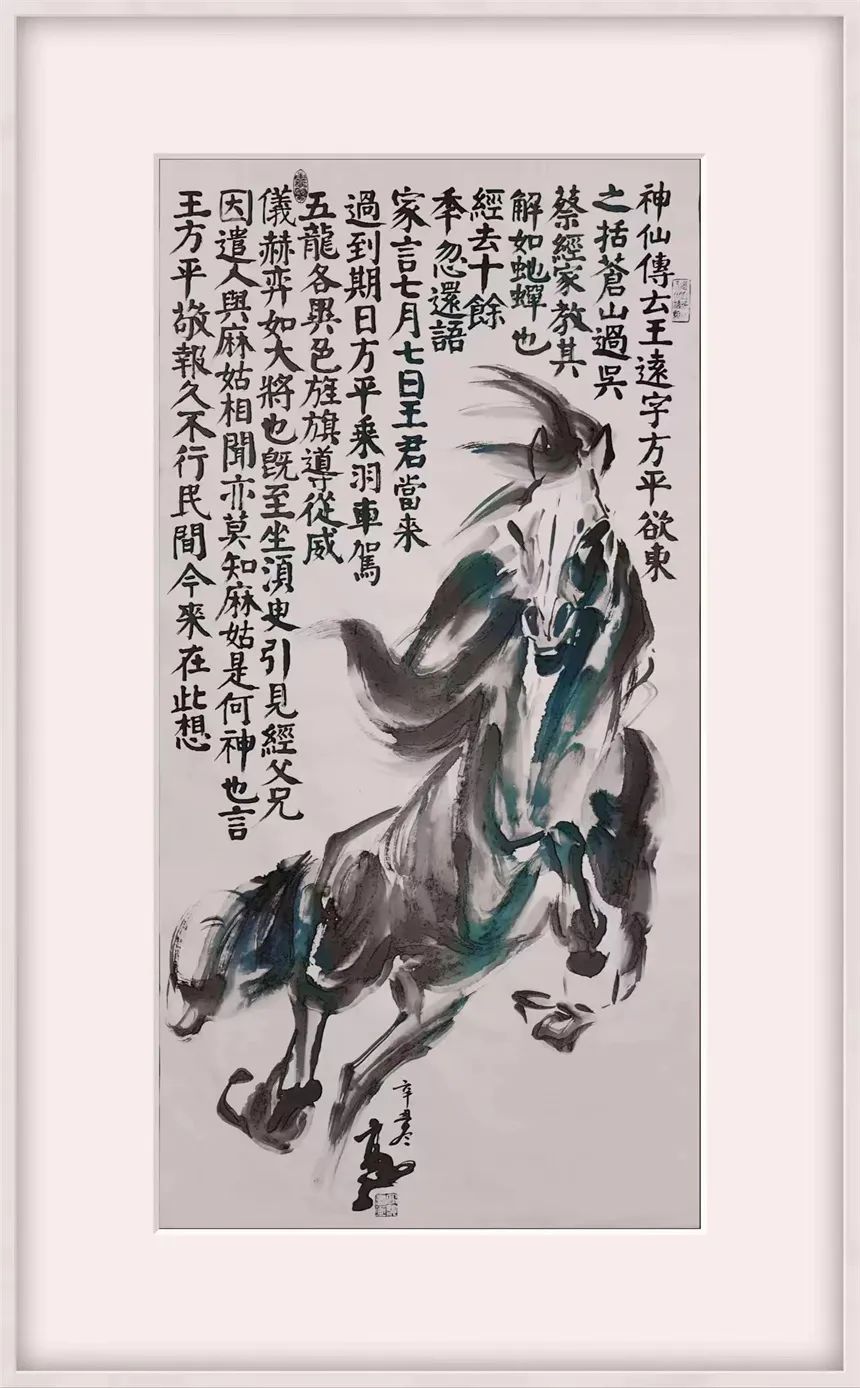 神仙傳云王遠字方平欲東
之括蒼山過吳
蔡經家教其
解如虵蟬也
經去十餘
秊忽還語
家言七月七日王君當来
過到期日方平乗羽車駕
五龍各異色旌旗導從威
儀赫弈如大將也旣至坐湏史引見經父兄
因遣人與麻姑相聞亦莫知麻姑是何神也言
王方平敬報久不行民間今來在此想
辛丑冬